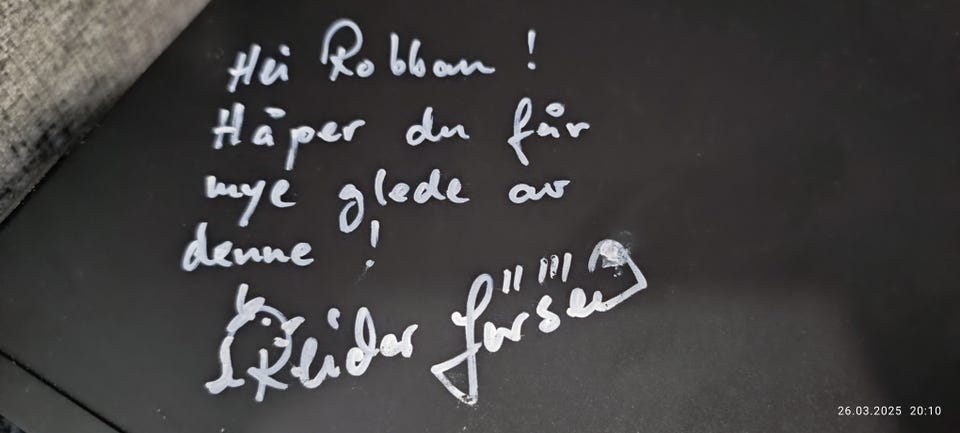 Hei Robban!
Håper du får
mye glede av
denne!
Reidar Larsen
26.03.2025 20:10